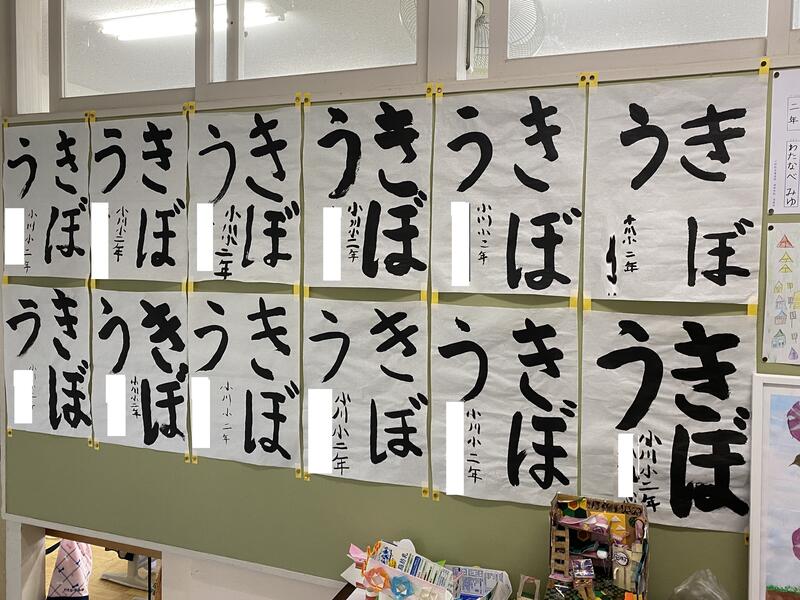 二年
わたなべ みゆ
きぼ
う
小川小二年
きぼ
う
小川小二年
きぼ
う
小川小二年
きぼ
う
小川小二年
きぼ
う
小川小二年
きぼ
う
小川小二年
きぼ
う
小川小二年
きぼ
う
小川小二年
きぼ
う
小川小二年
きぼ
う
小川小二年
きぼ
う
小川小二年
きぼ
う
小川小二年